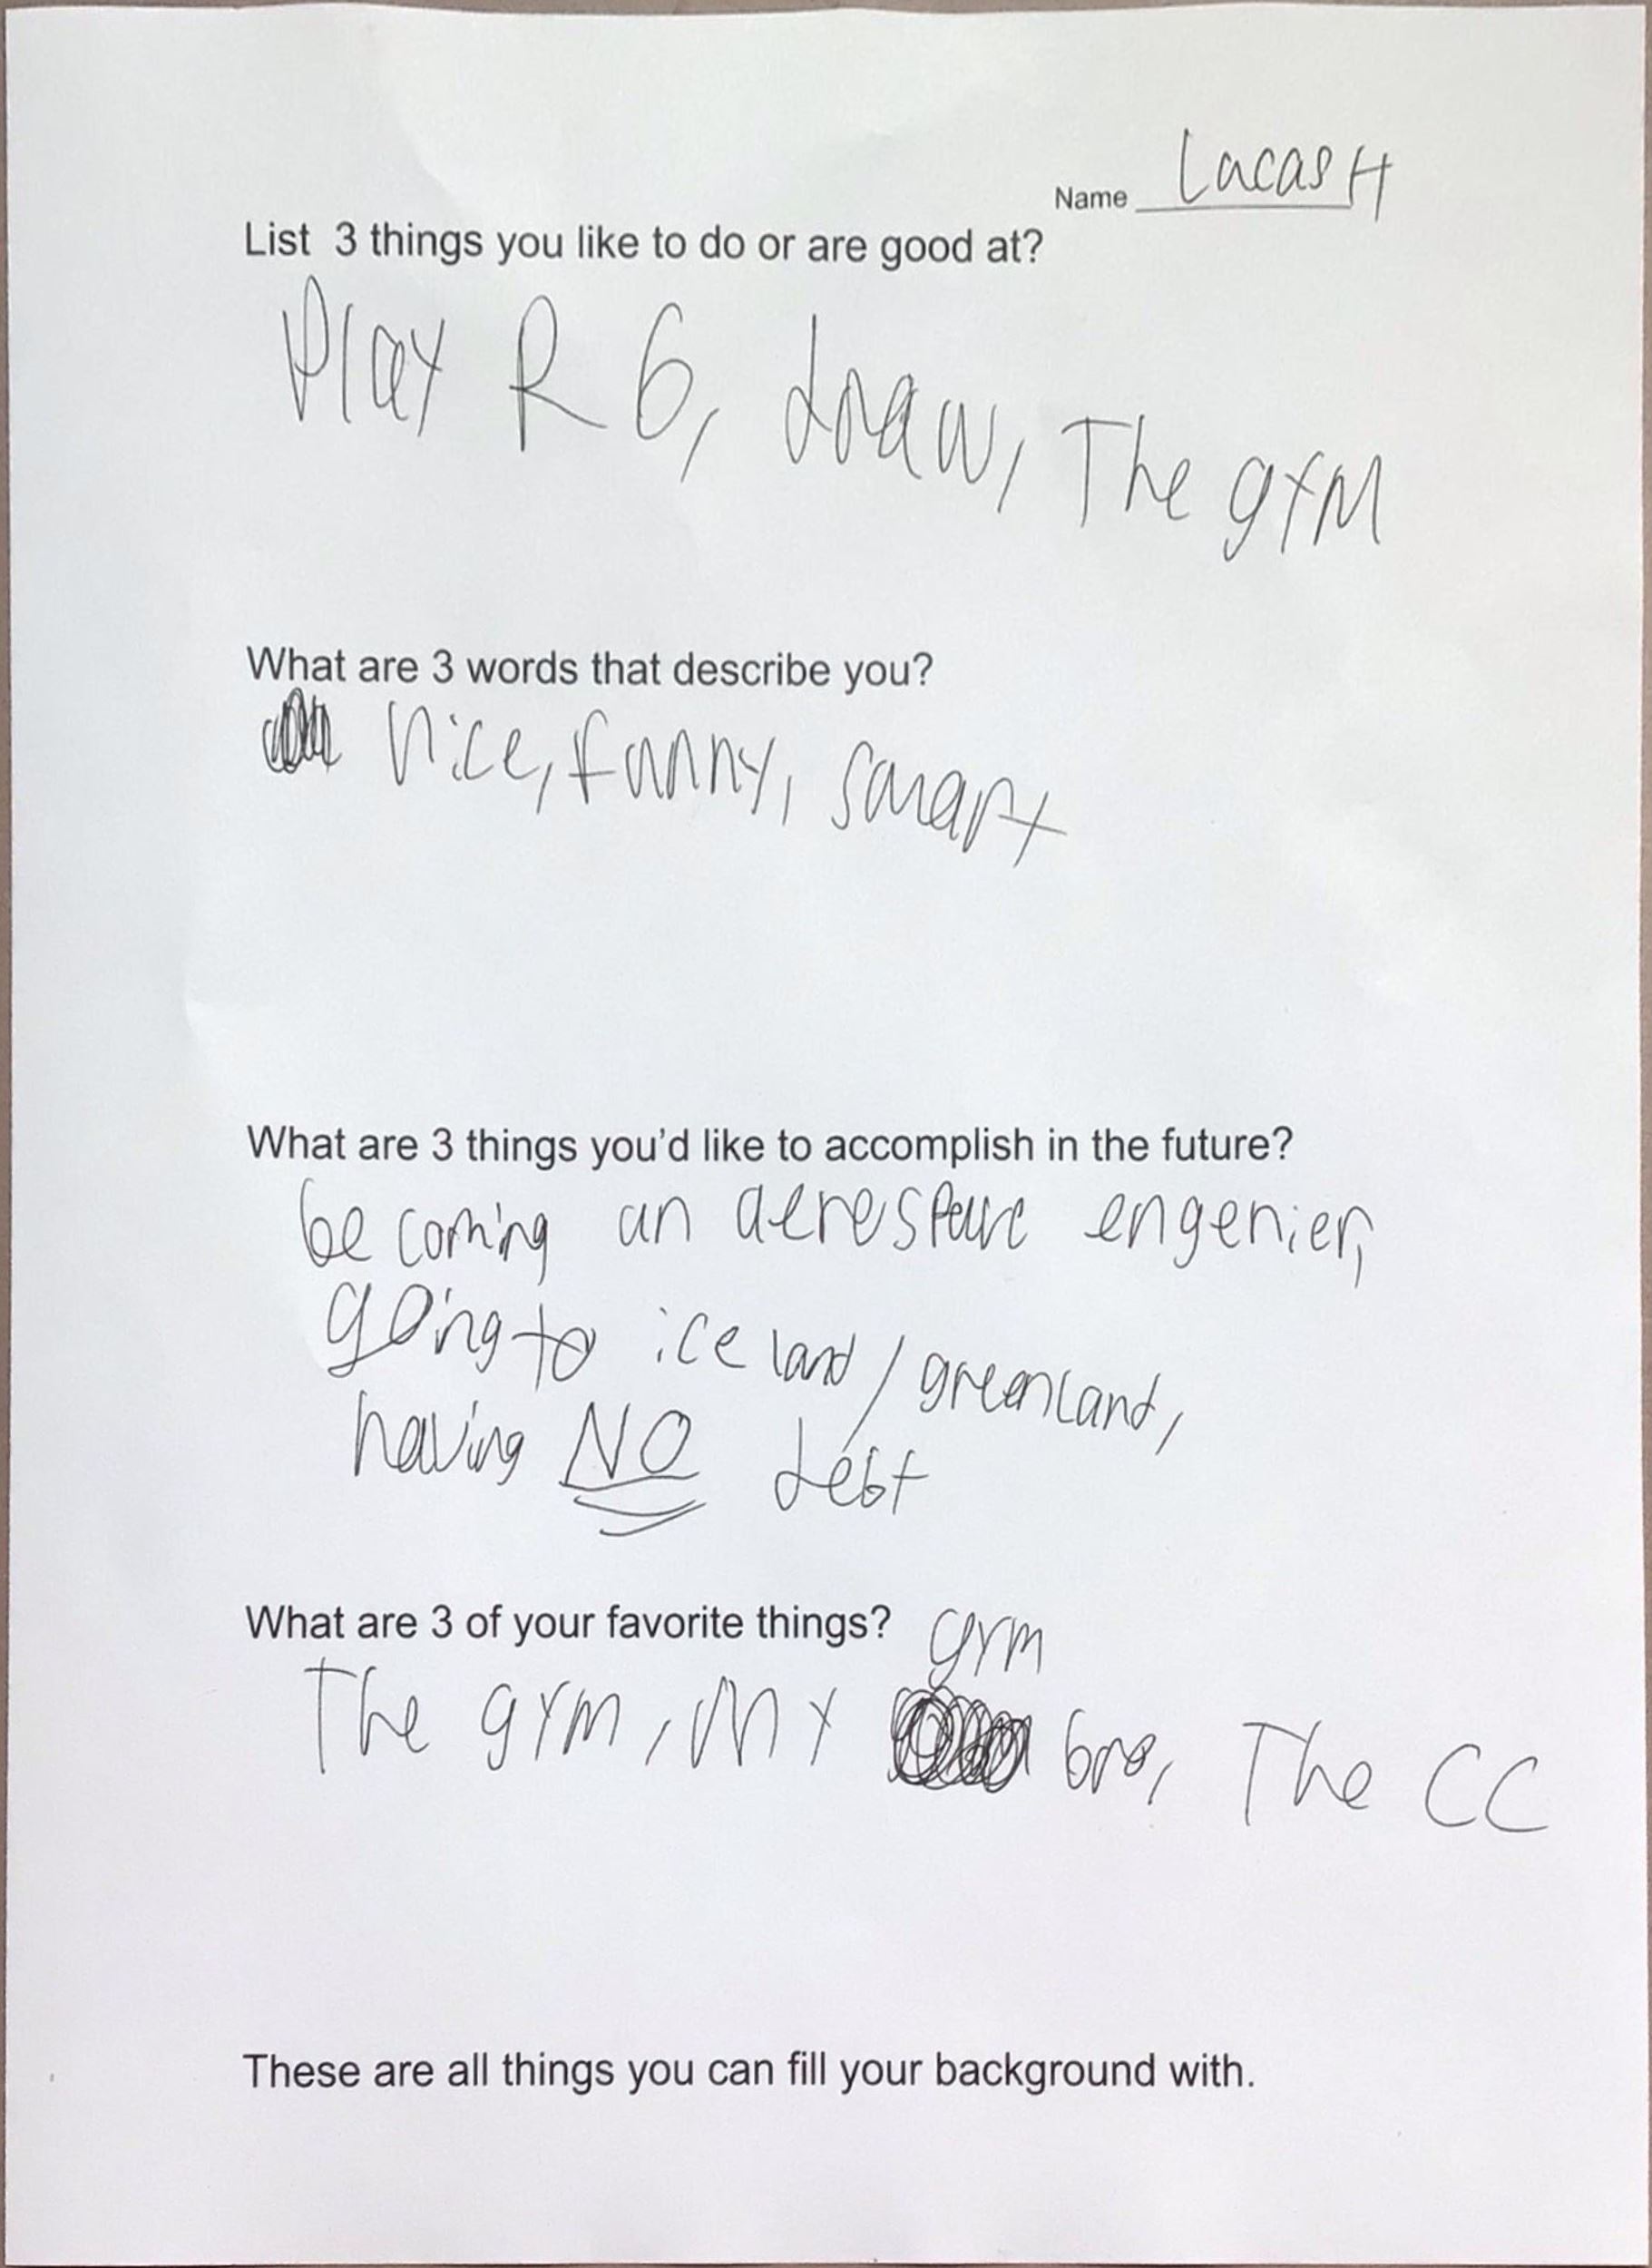 Name Lucas H
List 3 things you like to do or are good at?
Play R6, draw, The gym
What are 3 words that describe you?
nice, funny, smart
What are 3 things you'd like to accomplish in the future?
becoming an aerespace engenier,
going to ice land / greenland,
having NO debt
What are 3 of your favorite things?
gym
The gym, my bro, The CC
These are all things you can fill your background with.